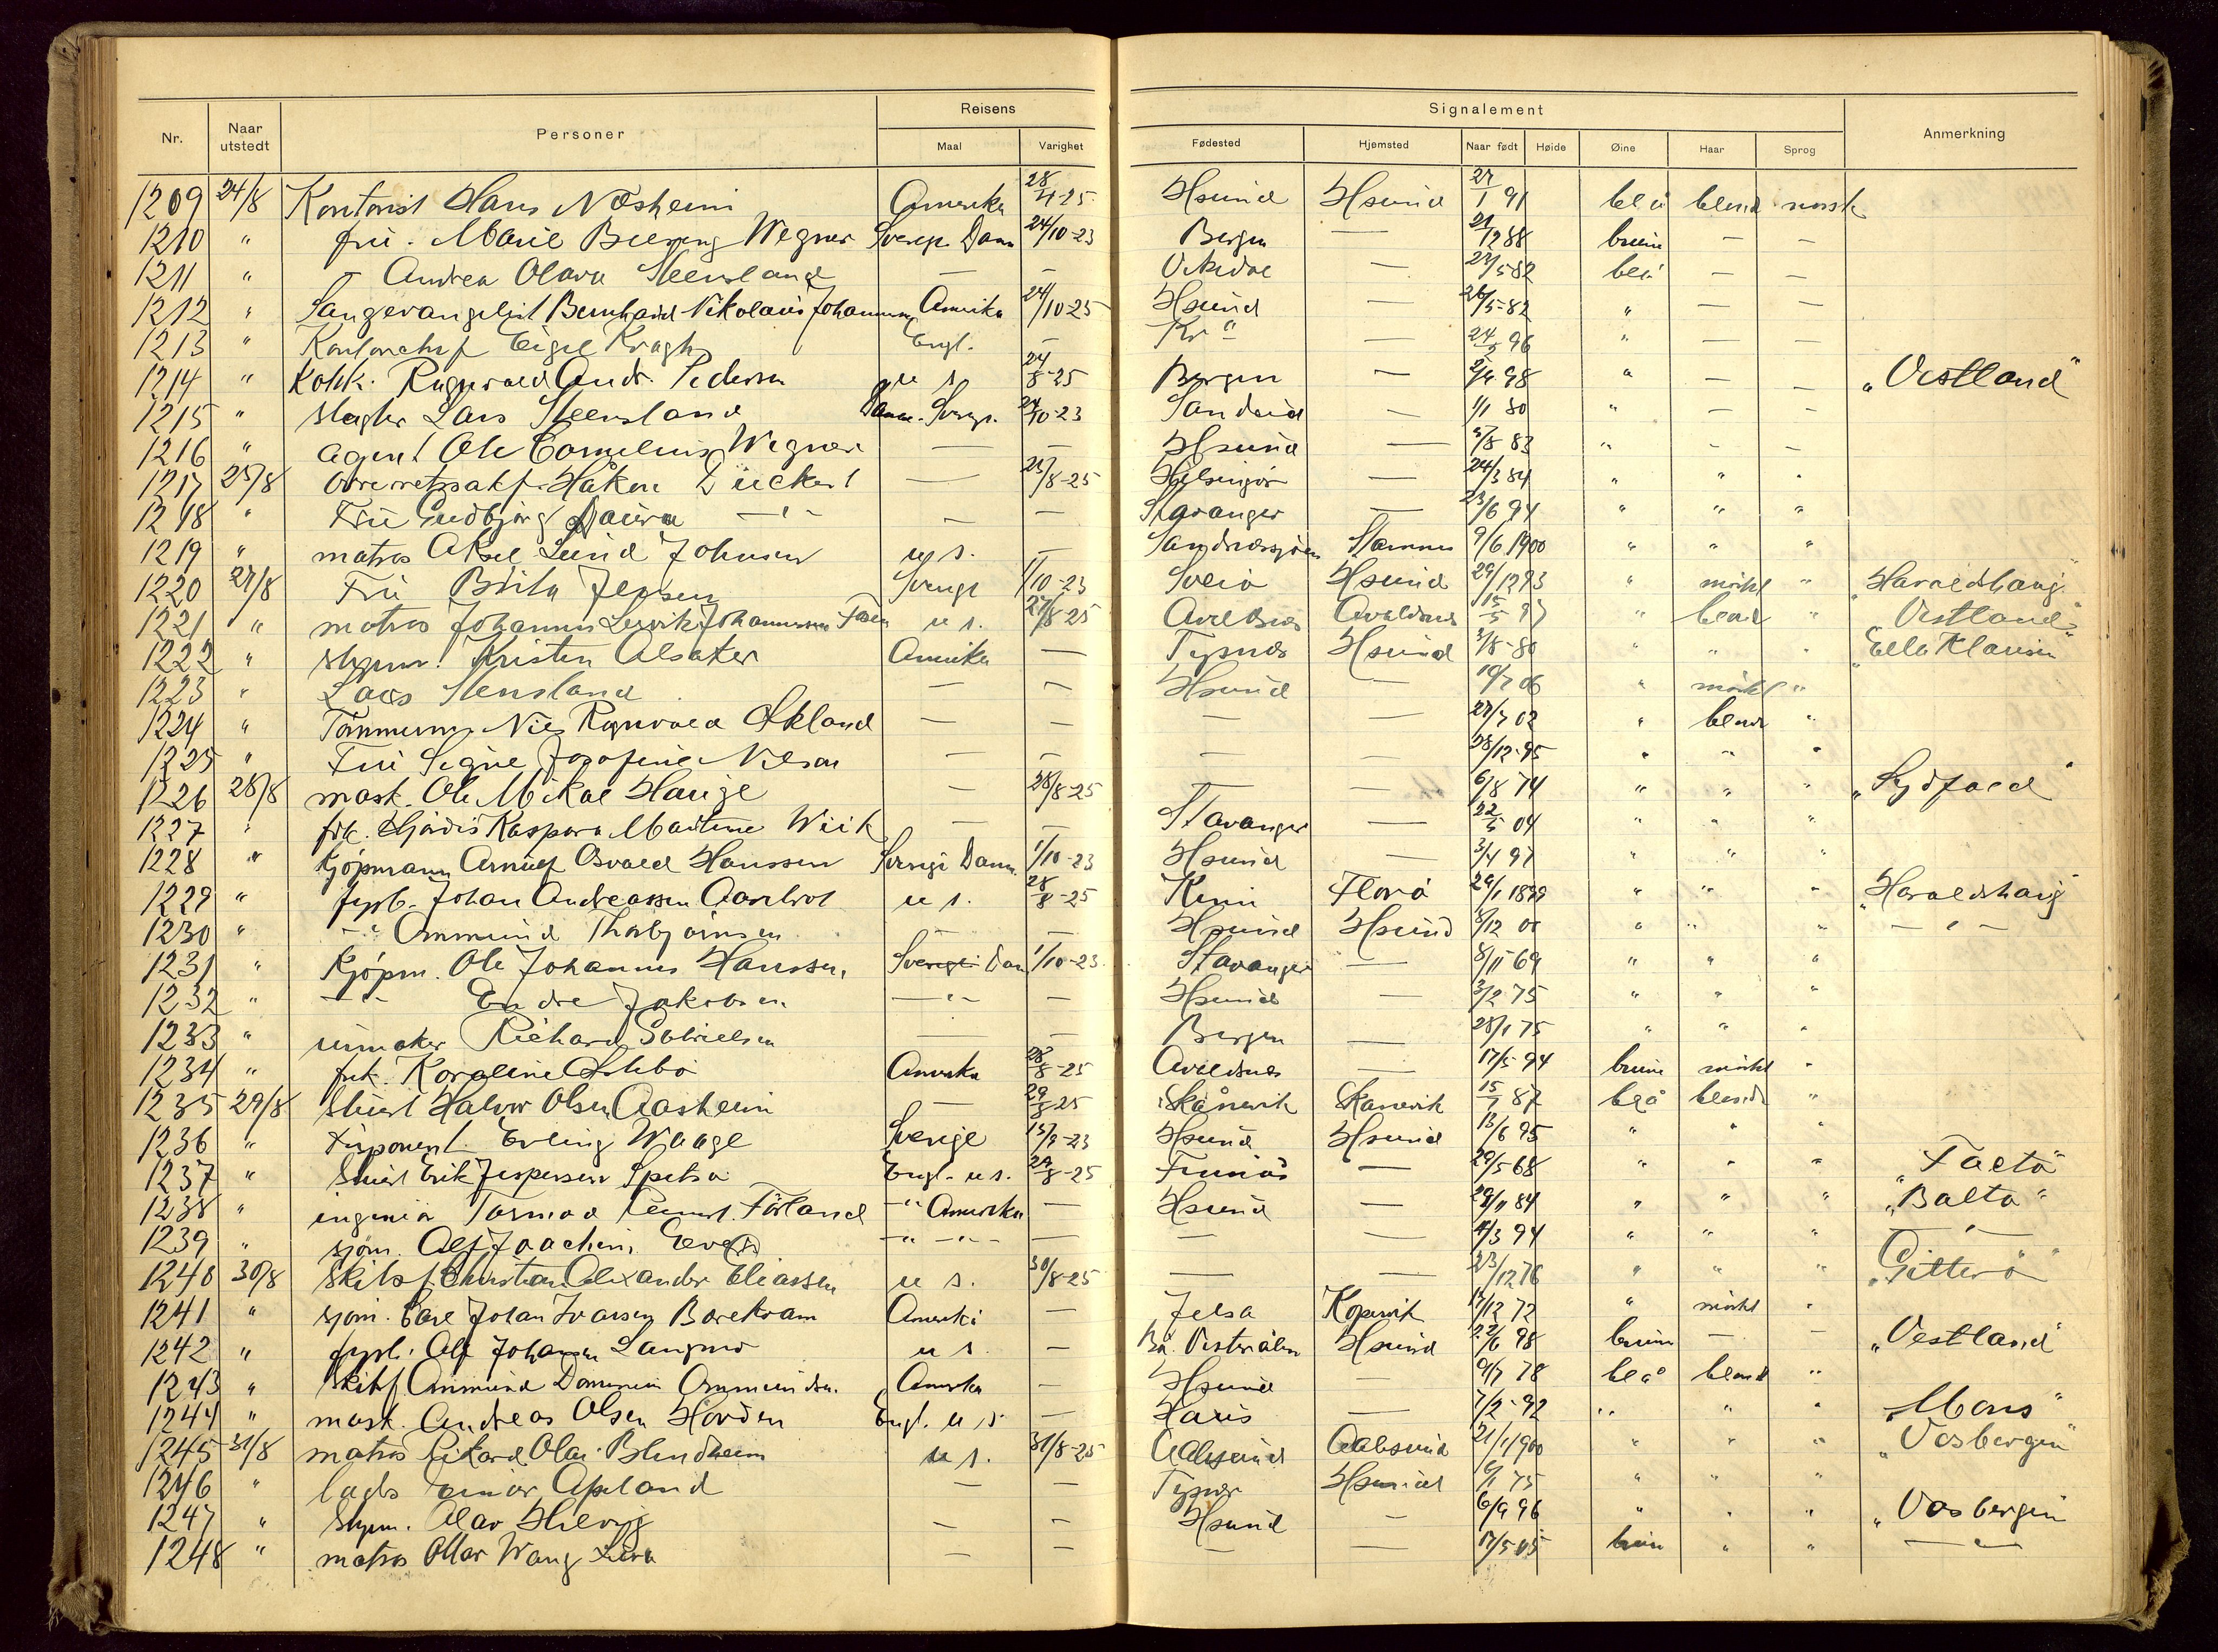 Nr. Naar utstedt Personer Reisens Maal Varighet Signalement Fødested Hjemsted Naar født Høide Øine Haar Sprog Anmerkning
1209 24/8 Kontorist Hans Næsheim Amerika Hsund Hsund 91 blå blond norsk
1210 " fru Marie Wegner Sverige Danm 24/10-23 Bergen — 88 brune — —
1211 " — Andrea Olava Steensland — — — 5 82 blå — —
1212 " Sangevangelist Bernhard Nikolaus Johannesen Amerika 24/10-25 Hsund — 26/5-82 " — —
1213 " Kontorchef Eigil Kragh Engl. — Kr " — 96 " — —
1214 " Kokk. Ragnvald Andr. Pedersen u s 24/8-25 Bergen — 98 " — — "Vestland"
1215 " slagter Lars Steensland Danm. Sverge. 24/10-23 Sandeid — 1/1 80 " — —
1216 " agent Ole Cornelius Wegner — — Hsund — 5/8 83 " — —
1217 25/8 Håkon — 25/8-25 Helsingør — 24/3 84 " " "
1218 " Fru Gudbjørg Laura — " — — — Stavanger — 23/6 94 " " "
1219 " matros Aksel Lund Johnsen u s. — Stamnes 9/6 1900 " " "
1220 27/8 Fru Brita Jepsen Sverge 1/10-23 Hsund 29/12 93 " mörkt " "Haraldshaug"
1221 " matros Johannes Johannessen u s. 27/8-25 Avaldsnes Avaldsnes 15/5 97 " blond " "Vestland"
1222 " styrm. Kristen Alsaker Amerika — Tysnes Hsund 3/8-80 " " " "Ella Klausen"
1223 " Lars Stensland — — Hsund — 06 " mörkt "
1224 " Tömmerm. Nils Ragnvald Økland — — — — 02 " blond "
1225 " Fru Signe Josefine Nilsen — — — — 28/12-95 " " "
1226 28/8 mask. Ole Mikal Hauge — 28/8-25 — — 6/8 74 " " " "Sydfold"
1227 " frk. Hjördis Kaspara Martine Wiik — — Stavanger — 22/5 04 " " "
1228 " Kjöpmann Arnulf Osvald Hanssen Sverige Danm. 1/10-23 Hsund — 3/4 97 " " "
1229 " fyrb. Johan Andreassen u s. 28/8-25 Kinn Florö 29/1 1899 " " " "Haraldshaug"
1230 " — " Ommund Thorbjörnsen — — Hsund Hsund 8/12 00 " " " — " —
1231 " Kjöpm. Ole Johannes Hanssen Sverige Dan 1/10-23 Stavanger — 8/11-69 " " "
1232 " — " Endre Jakobsen — " — — Hsund — 3/2 75 " " "
1233 " urmaker Richard Gabrielsen — — Bergen — 28/1 75 " " "
1234 " frk. Karoline Amerika 28/8-25 Avaldsnes — 17/5-94 brune mörkt "
1235 29/8 Stuert Halvor Olsen Aasheim — 29/8 25 Skånevik Skanevik 15/7 87 blå blondt "
1236 " Disponent Erling Waage Sverige 15/9-23 Hsund Hsund 13/6 95 " " "
1237 " Stuert Erik Jespersen Engl. u s. 29/8-25 Finnås — 29/5 68 " " " "Falto"
1238 " ingeniør Tormod Förland — " Amerika — Hsund — 84 " " " "Balto"
1239 " sjöm. Alf Joachim — " — " — — — — 4/3 94 " " " — " —
1240 30/8 Skibsf Christian Alexander Eliassen u s. 30/8-25 — — 23/12 76 " " "
1241 " sjöm. Carl Johan Ivarsen Amerika — Jelsa Kopervik 14/12 72 " mörkt "
1242 " fyrb. Alf Johansen u s. — Bö. Vesterålen Hsund 22/6 98 brune — — "Vestland"
1243 " Skibsf Ommund Ommundsen. Amerika — Hsund — 9/7 78 blå blond "
1244 " mask. Andreas Olsen Engl. u s — — 7/2-92 " " " "Mons"
1245 31/8 matros Rikard Olai Blindheim u s. 31/8-25 Aalesund Aalesund 21/1 1900 " " " "Vosbergen"
1246 " Apeland — — Tysvær Hsund 75 " " "
1247 " Styrm. Olav — — Hsund — 6/9 96 " " " "Vosbergen"
1248 " matros Ottar Wang — — — — 17/5 05 brune " " — " —